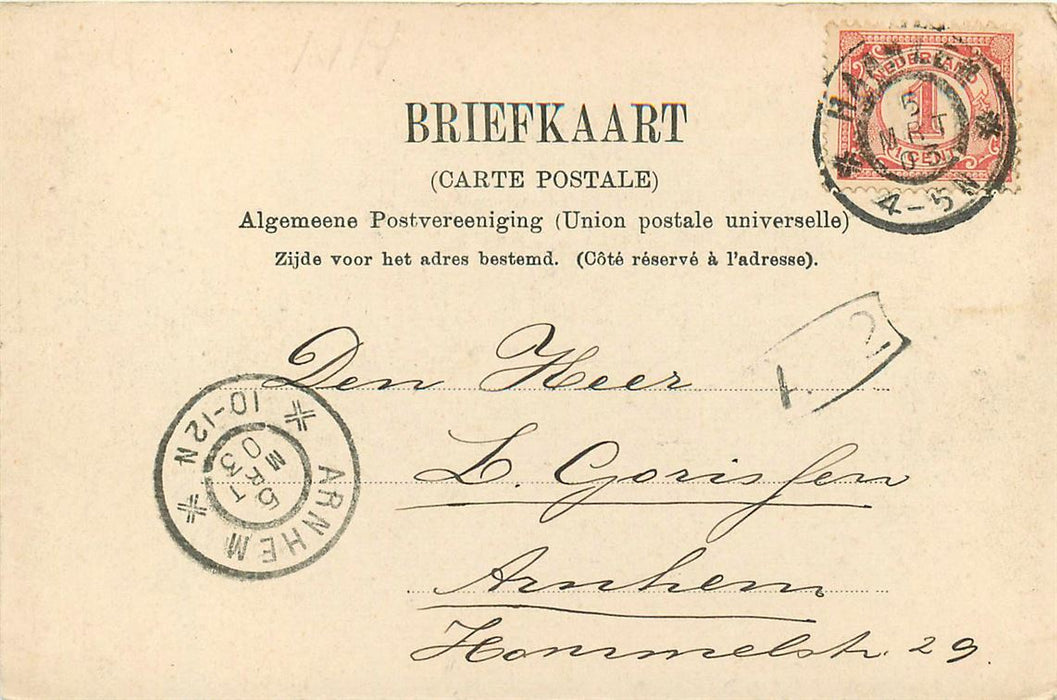 BRIEFKAART
(CARTE POSTALE)
Algemeene Postvereeniging (Union postale universelle)
Zijde voor het adres bestemd. (Côté réservé à l'adresse).
HAARLEM
5
MRT
03
4-5N
NEDERLAND
1
CENT
1 2
Den Heer
L. Gorissen
Arnhem
Hommelstr. 29.
ARNHEM
10-12N
5
MRT
03